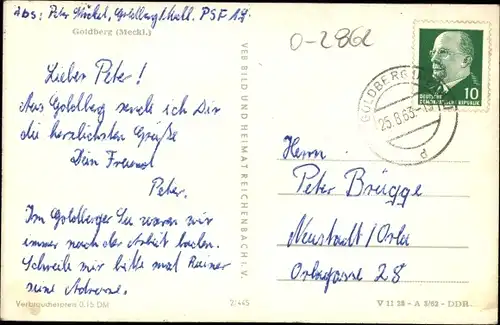 Abs: Peter Günkel, Goldberg/Meckl. PSF 19.
Goldberg (Meckl.)
0-2862
Lieber Peter!
Aus Goldberg sende ich Dir
die herzlichsten Grüße
Dein Freund
Peter.
Im Goldberger See waren wir
immer nach der Arbeit baden.
Schreibe mir bitte mal Rainer
seine Adresse.
Verbraucherpreis 0,15 DM
2/445
VEB BILD UND HEIMAT REICHENBACH I. V.
GOLDBERG
25.8.63.
DEUTSCHE
DEMOKRATISCHE REPUBLIK
10
Herrn
Peter Brügge
Neustadt/Orla
Orlagasse 28
V 11 28 - A 5/63 - DDR